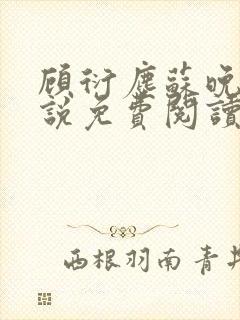 顾衍塵蘇晚
說免費閱讀
西根羽南青